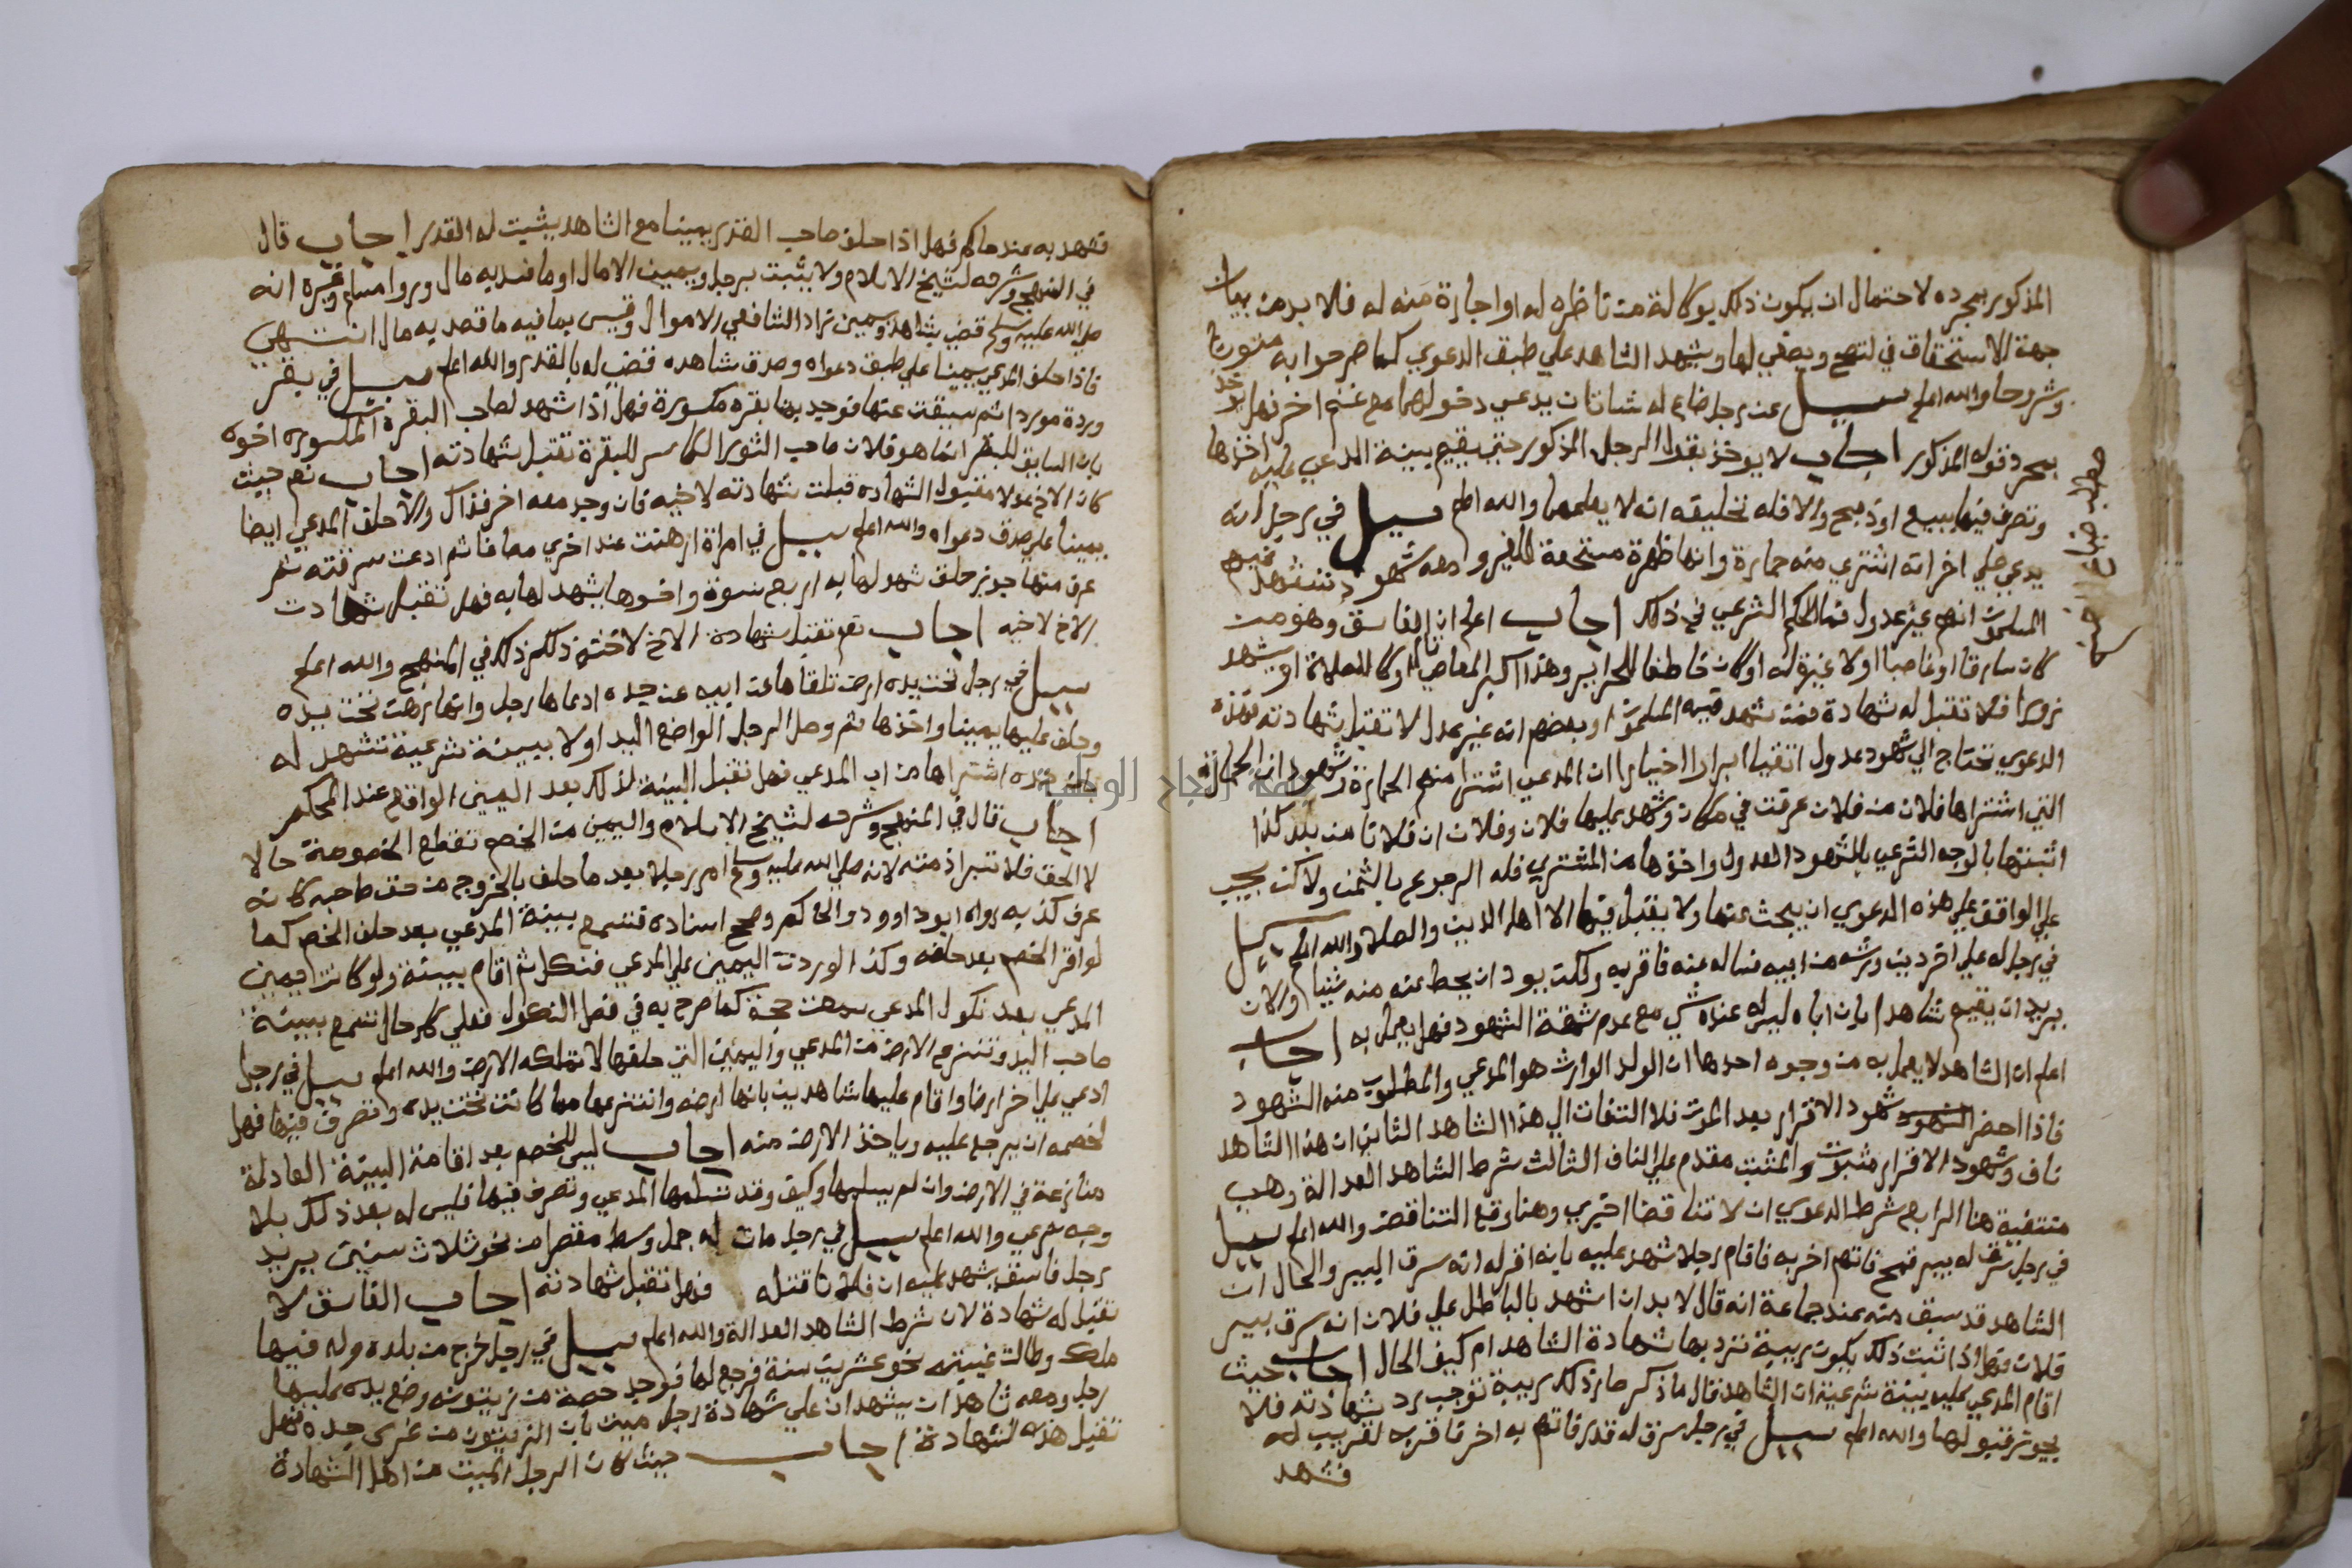 المذكور بمجرده لاحتمال ان يكون ذلك بوكالة من ناظره له او اجارة منه له فلا بد من بيان
جهة الاستحقاق في لتصح ويصغي لها ويشهد الشاهد علي طبق الدعوي كما صرحوا به متونا
وشروحا والله اعلم سيل عن رجل ضاع له شاتان يدعي دخولهما مع غنم اخر فهل يوخذ
بمجرد قوله المذكور اجاب لا يوخذ بقول الرجل المذكور حتى يقيم بينة المدعي عليه اخذها
وتصرف فيها ببيع او ذبح والا فله تحليفه انه لا يعلمها والله اعلم سيل في رجل انه
يدعي علي اخر انه اشتري منه حمارة وانها ظهرة مستحقة للغير ومعه شهود تشهد فيهم
المسلمون انهم غير عدول فما الحكم الشرعي في ذلك اجاب اعلم ان الفاسق وهو من
كان سارقا او غاصبا اولا غيرة له او كان خاطفا للحراير وهذا اكبر المعاصي او تاركا للصلاة او يشهد
زورا فلا تقبل له شهادة فمن شهد فيه المسلمون او بعضهم انه غير عدل لا تقبل شهادته فهذه
الدعوي تحتاج الي شهود عدول اتقيا ابرارا اخيارا ان المدعي اشترا منهم الحمارة وشهود ان الحمارة
التي اشتراها فلان من فلان عرقت في مكان وشهد عليها فلان وفلان ان فلانا من بلد كذا
اثبتها بالوجه الشرعي بالشهود العدول واخذها من المشتري فله الرجوع بالثمن ولاكن يجب
علي الواقف علي هذه الدعوي ان يبحث عنها ولا يقبل فيها الا اهل الدين والصلاة والله اعلم سيل
في رجل له علي اخر دين ورثه من ابيه فساله عنه فاقر به ولكن يود ان يحط عنه منه شيا والان
يريد ان يقيم شاهدا بان اباه ليس له عنده شي مع عدم شهقة الشهود فهل يعمل به اجاب
اعلم ان الشاهد لا يعمل به من وجوه احدها ان الولد الوارث هو المدعي والمطلوب منه الشهود
فاذا احضر الشهود شهود الاقرار بعد الموت فلا التفات الي هذا الشاهد الثاني ان هذا الشاهد
ناف وشهود الاقرار مثبتون والمثبت مقدم علي الناف الثالث شرط الشاهد العدالة وهي
منتفية هنا الرابع شرط الدعوي ان لا تناقضا اخري وهنا وقع التناقض والله اعلم سيل
في رجل سرق له بير قمح فاتهم اخر به فاقام رجلا شهد عليه بانه اقر له انه سرق البير والحال ان
الشاهد قد سبق منه عند جماعة انه قال لا بد ان اشهد بالباطل علي فلان انه سرق بير
فلان فهل اذا ثبت ذلك يكون ريبة ترد بها شهادة الشاهد ام كيف الحال اجاب حيث
اقام المدعي عليه بينة شرعية ان الشاهد قال ما ذكر صار ذلك ريبة توجب رد شهادته فلا
يجوز قبولها والله اعلم سيل في رجل سرق له قدر فاتهم به اخر فاقر به لقريب له
فشهد
مطلب ضياع الغنم
فشهد به عند حاكم فهل اذا حلف صاحب القدر يمينا مع الشاهد يثبت له القدر اجاب قال
في المنهج وشرحه لشيخ الاسلام ولا يثبت برجل ويمين الا مال او ما قصد به مال وروا مسلم وغيره انه
صلي الله عليه وسلم قضي بشاهد ويمين زاد الشافعي في الاموال وقيس بما فيه ما قصد به مال انتهي
فاذا حلف المدعي يمينا علي طبق دعواه وصدق شاهده قضي له بالقدر والله اعلم سيل في بقر
وردة موردا ثم سبقت عنها فوجد بها بقره مكسورة فهل اذا شهد لصاحب البقرة المكسوره اخوه
بان السابق للبقر انما هو فلان صاحب الثور الكاسر للبقرة تقبل شهادته اجاب نعم حيث
كان الاخ عدلا مقبول الشهاده قبلت شهادته لاخيه فان وجد معه اخر فذاك والا حلف المدعي ايضا
يمينا علي صدق دعواه والله اعلم سيل في امراة ارهنت عند اخري مصاغا ثم ادعت سرقته ثم
عرف منها جوز حلق شهد لها به اربع نسوة واخوها يشهد لها به فهل تقبل شهادت
الاخ لاخيه اجاب نعم تقبل شهادة الاخ لاخته ذكر ذلك في المنهج والله اعلم
سيل في رجل تحت يده ارض تلقاها عن ابيه عن جده ادعاها رجل وانها رهن تحت يده
وحلف عليها يمينا واخذها ثم وصل الرجل الواضع اليد اولا ببينة شرعية تشهد له
بان جده اشتراها من اب المدعي فهل تقبل البينة لذلك بعد اليمين الواقع عند المحكم
اجاب قال في المنهج وشرحه لشيخ الاسلام واليمين من الخصم تقطع الخصومة حالا
لا الحق فلا تبرا ذمته لانه صلي الله عليه وسلم امر رجلا بعد ما حلف بالخروج من حق صاحبه كانه
عرف كذبه رواه ابو داوود والحاكم وصحح اسناده فتسمع بينة المدعي بعد حلف الخصم كما
لو اقر الخصم بعد حلفه وكذا لو ردت اليمين علي المدعي فنكل ثم اقام بينة ولو كانت يمين
المدعي بعد نكول المدعي سمعت حجة كما صرح به في فصل النكول فعلي كل حال تسمع بينة
صاحب اليد وتنزع الارض من المدعي واليمين التي حلفها لا تملكه الارض والله اعلم سيل في رجل
ادعي علي اخر ارضا واقام عليها شاهدين بانها ارضه وانتزعها مما كانت تحت يده وتصرف فيها فهل
لخصمه ان يرجع عليه وياخذ الارض منه اجاب ليس للخصم بعد اقامة البينة العادلة
منازعة في الارض وان لم يسلمها وكيف وقد تسلمها المدعي وتصرف فيها فليس له بعد ذلك بلا
وجه شرعي والله اعلم سيل في رجل مات له جمل وسط مفصل من نحو ثلاث سنين يريد
رجل فاسق يشهد عليه ان فلانا قتله فهل تقبل شهادته اجاب الفاسق لا
تقبل له شهادة لان شرط الشاهد العدالة والله اعلم سيل في رجل خرج من بلده وله فيها
ملك وطالت غيبته نحو عشرين سنة فرجع لها فوجد حصة من زيتونه وضع يده عليها
رجل ومعه شاهدان يشهدان علي شهادة رجل ميت بان الزيتون من غرس جده فهل
تقبل هذه الشهادة اجاب حيث كان الرجل الميت من اهل الشهادة